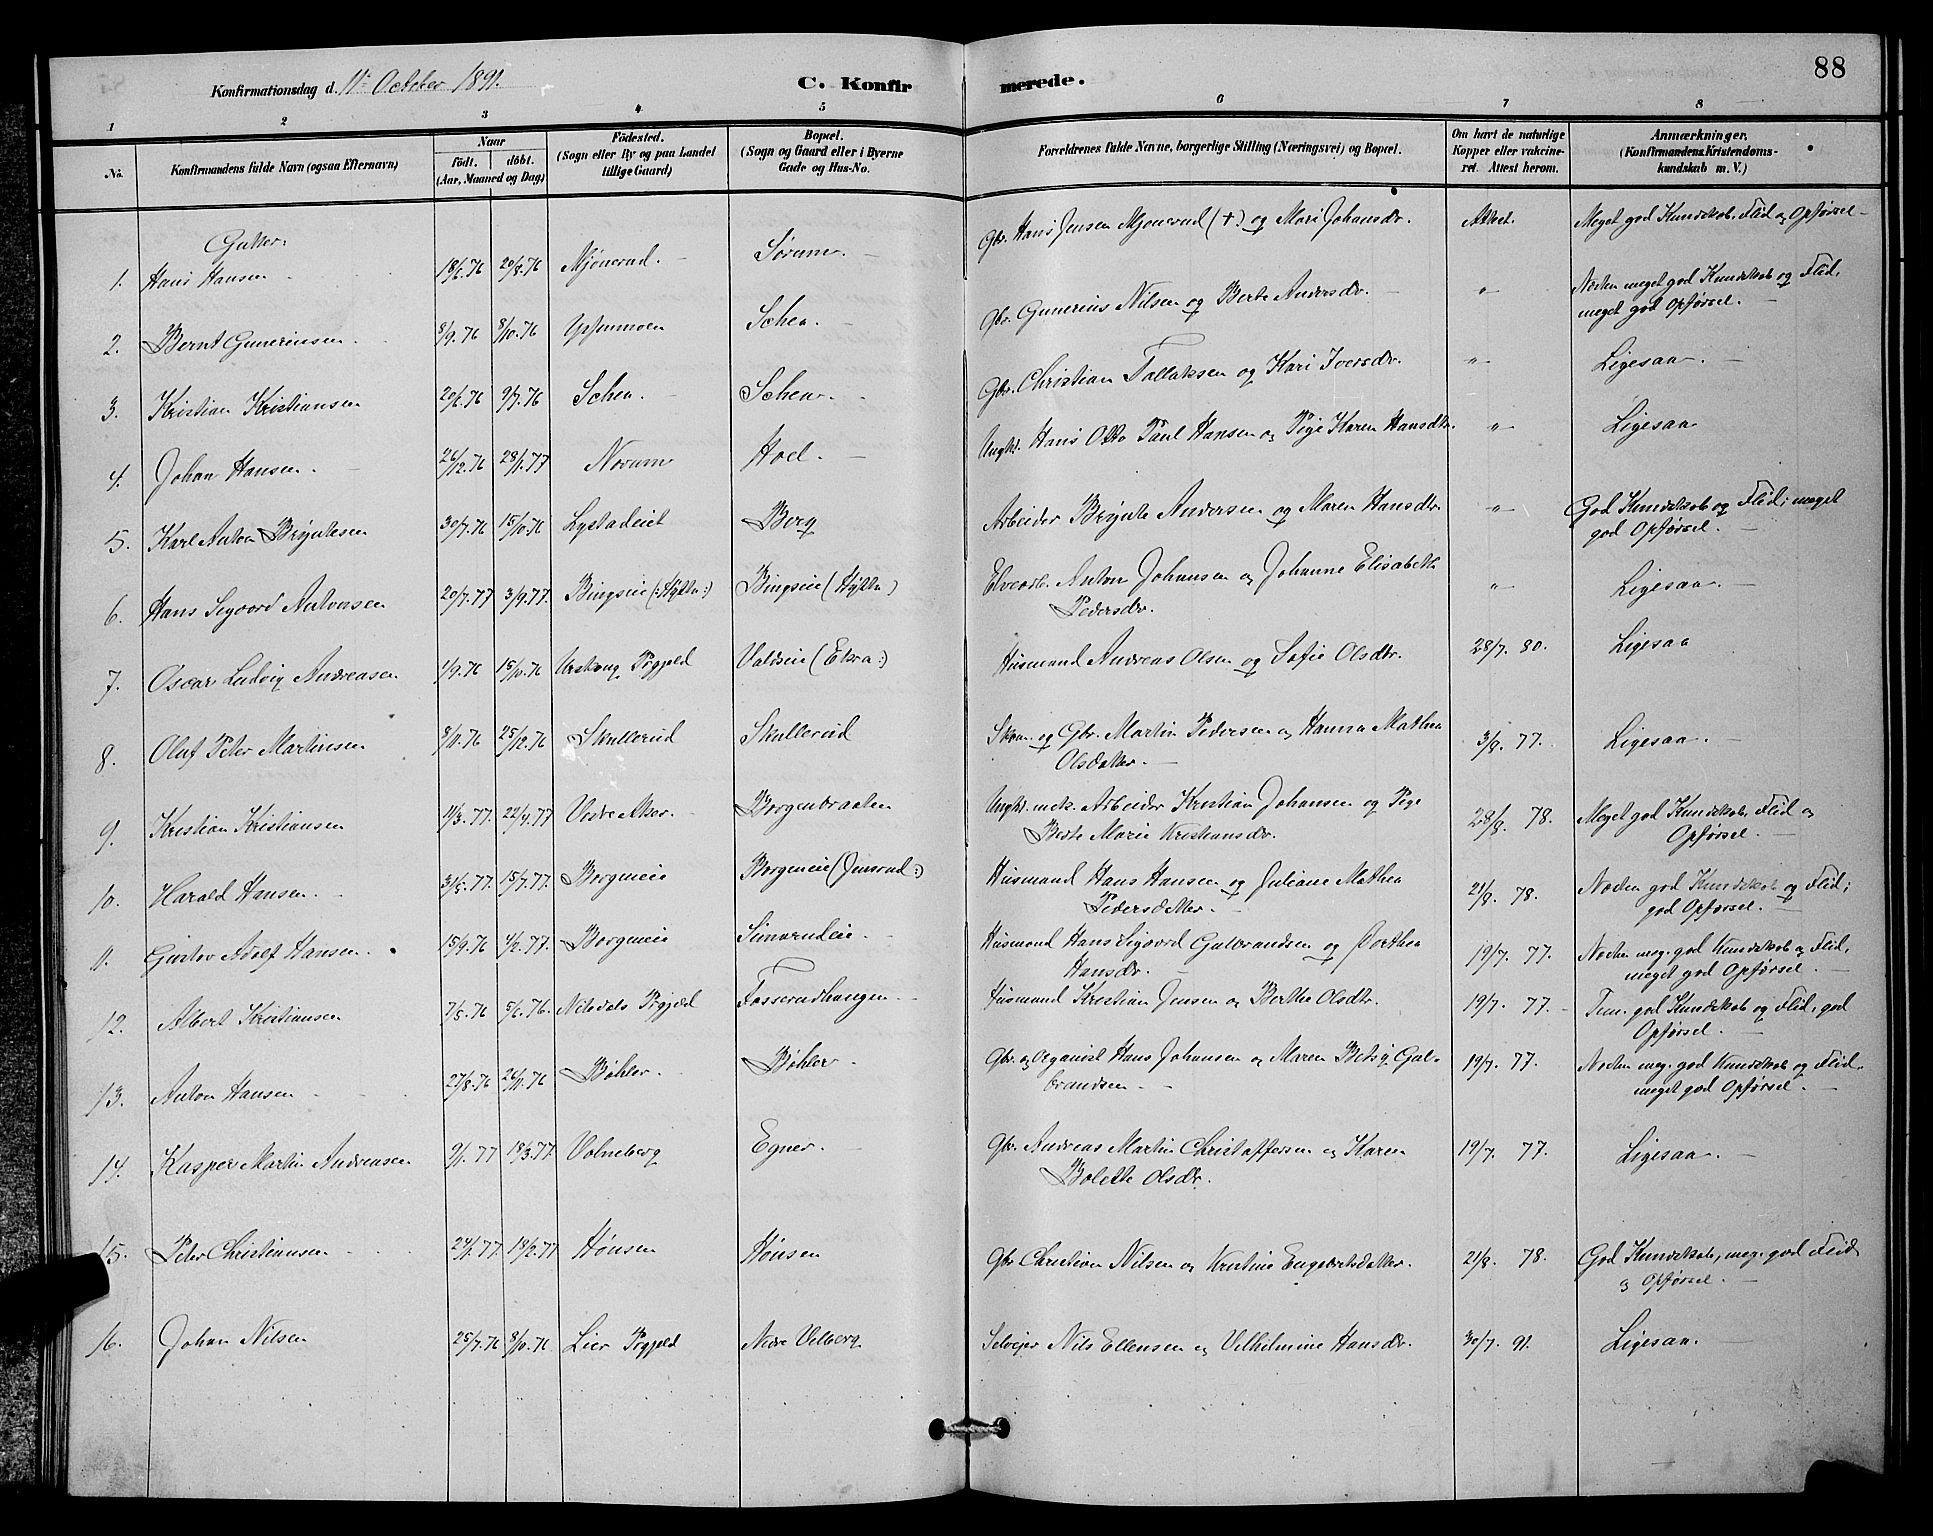 88
Konfirmationsdag d. 11te October 1891. C. Konfirmerede.
1 2 3 4 5 6 7 8
No. Konfirmandens fulde Navn (ogsaa Efternavn) Naar født. døbt. (Aar, Maaned og Dag) Fødested. (Sogn eller By og paa Landet tillige Gaard) Bopæl. (Sogn og Gaard eller i Byerne Gade og Hus-No. Forældrenes fulde Navne, borgerlige Stilling (Næringsvei) og Bopæl. Om havt de naturlige Kopper eller vakcineret. Attest herom. Anmærkninger. (Konfirmandens Kristendomskundskab m. V.)
Gutter.
1. Hans Hansen 18/6.76 20/8.76 Mjønerud. Sørum Gbr. Hans Jensen Mjønerud (+) og Mari Johansdr. Attest. Meget god Kundskab, Flid og Opførsel
2. Bernt Gunerinsen 8/9.76 8/10.76 Schea. Gbr. Gunerius Nilsen og Berte Andersdr. " Næsten meget god Kundskab og Flid,
meget god Opførsel.
3. Kristian Kristiansen 20/6.76 9/7.76 Schea Schea Gbr. Christian Tollaksen og Kari Iversdr. " Ligesaa.
4. Johan Hansen 26/12.76 28/1.77 Norum Hoel. Ungk. Hans Otto Paul Hansen og Pige Karen Hansdtr. " Ligesaa
5. Karl Anton Bryntesen 30/7.76 15/10.76 Lystadeiet Borg Arbeider Brynte Andersen og Maren Hansdr. " God Kundskab og Flid; meget
god Opførsel.
6. Hans Sigvard Antonsen 20/7.77 3/9.77. Bingseie (:Hytta:) Bingseie (Hytta) Elvearb. Anton Johansen og Johanne Elisabeth
Pedersdr. " Ligesaa.
7. Oscar Ludvig Andreasen 1/9.76 15/10.76 Urskoug Prgjeld Valdseie (Ekra:) Husmand Andreas Olsen og Sofie Olsdtr. 28/7. 80. Ligesaa
8. Oluf Peter Martinsen 8/11.76 25/12.76 Skullerud Skullerud og Gbr. Martin Pedersen og Hanna Mathea
Olsdatter. 3/9. 77. Ligesaa.
9. Kristian Kristiansen 11/3.77. 22/4.77 Vestre Aker. Borgenbraaten Ungk. mek. Arbeider Kristian Johansen og Pige
Berte Marie Kristiansdr. 28/9. 78. Meget god Kundskab, Flid og
Opførsel.
10. Harald Hansen. 31/5.77. 15/7.77. Borgeneie Borgeneie (Jensrud:) Husmand Hans Hansen og Juliane Mathea
Pedersdatter. 21/9. 78. Næsten god Kundskab og Flid;
god Opførsel.
11. Gustav Adolf Hansen. 15/9.76 4/2.77. Borgeneie Simarudeie. Husmand Hans Sigvard Gulbrandsen og Dorthea
Hansdr. 19/7. 77. Næsten meg. god Kundskab og Flid,
meget god Opførsel.
12. Albert Kristiansen 7/5.76 5/6.76. Nitedals Prgjæld Fosserudhaugen Husmand Kristian Jensen og Berthe Olsdtr. 19/7. 77. Tem. god Kundskab og Flid, god
Opførsel.
13. Anton Hansen 27/8.76 26/11.76 Bøhler. Bøhler Gbr. og Organist Hans Johansen og Maren Betsy Gul-
brandsen 19/7. 77. Næsten meg. god Kundskab og Flid.
meget god Opførsel.
14. Kasper Martin Andreasen 9/1.77 18/3.77 Volneberg Egner. Gbr. Andreas Martin Christoffersen og Karen
Bolette Olsdr. 19/7. 77. Ligesaa.
15. Peter Christiansen 24/1.77 18/2.77 Hønsen Hønsen Gbr Christian Nilsen og Kristine Engebretsdatter. 21/9. 78. God Kundskab, meg. god Flid
og Opførsel.
16. Johan Nilsen 25/7.76 8/10.76 Lier Prgjeld Nedre Velberg Selveier Nils Ellensen og Vilhelmine Hansdr. 30/7. 91. Ligesaa.